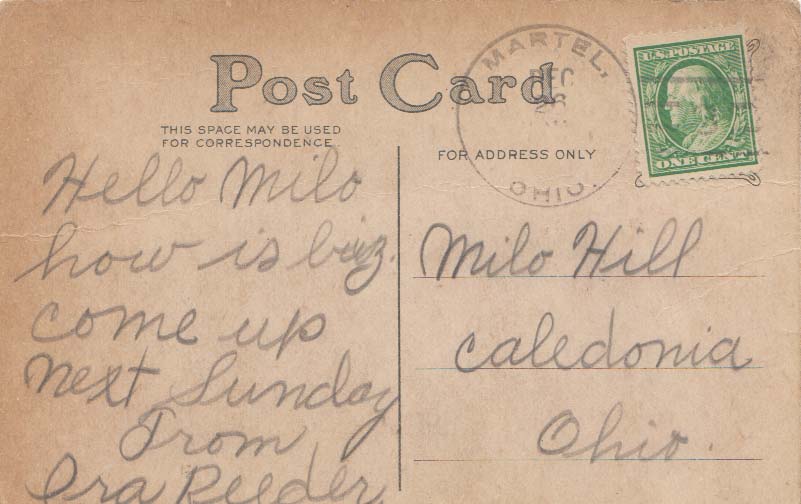 Post Card
THIS SPACE MAY BE USED
FOR CORRESPONDENCE
FOR ADDRESS ONLY
MARTEL,
DEC
26
OHIO.
U.S. POSTAGE
ONE CENT
Hello Milo
how is biz.
come up
next Sunday
From
Ora Reeder.
Milo Hill
Caledonia
Ohio.